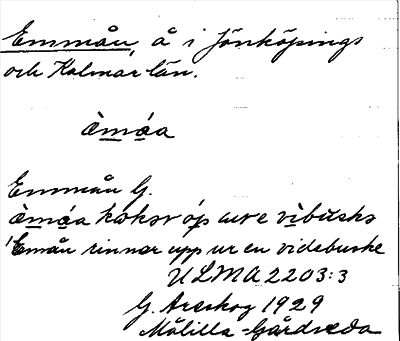 Emmån, å i Jönköpings
och Kalmar län.
èmåa
Emmån G.
èmåa koksr óp ure vìbusks
'Emån rinner upp ur en videbuske
ULMA 2203:3
G. Areskog 1929
Målilla-Gårdveda